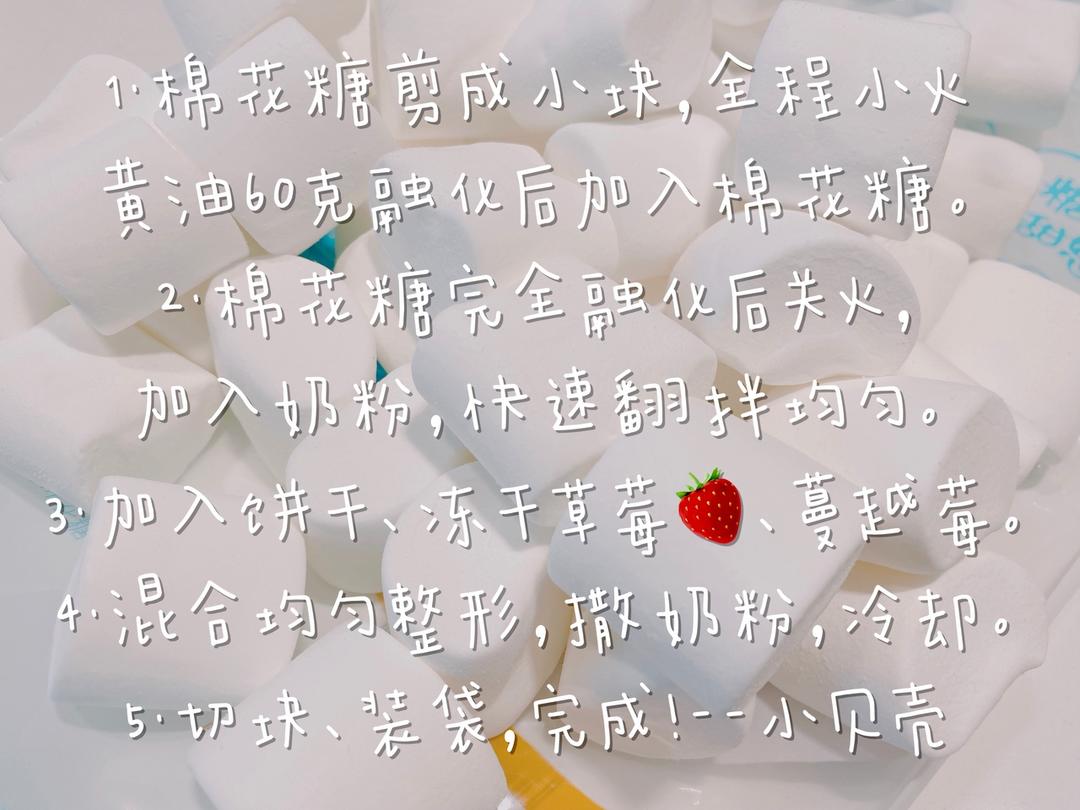 1.棉花糖剪成小块,全程小火
黄油60克融化后加入棉花糖。
2.棉花糖完全融化后关火,
加入奶粉,快速翻拌均匀。
3.加入饼干、冻干草莓🍓、蔓越莓。
4.混合均匀整形,撒奶粉,冷却。
5.切块、装袋,完成!--小贝壳